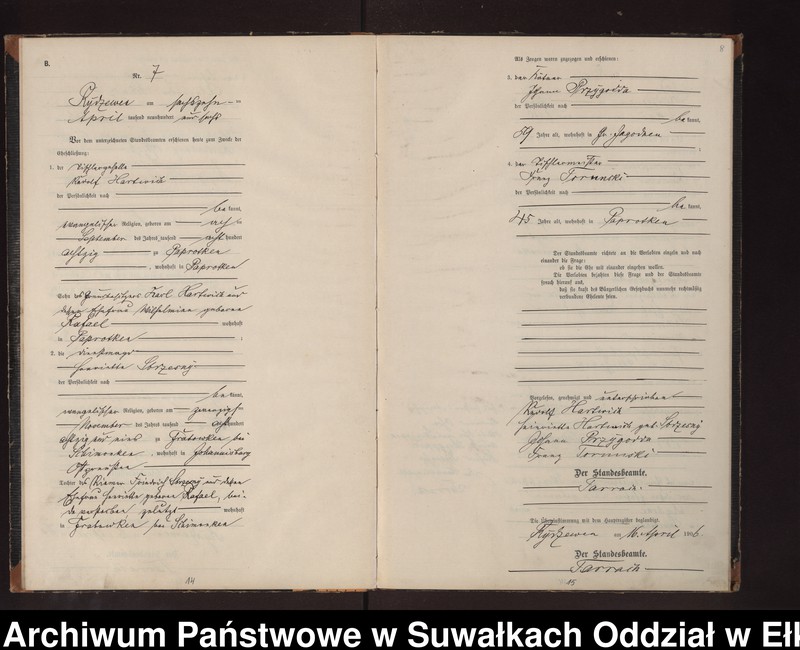 8.
Nr. 7
Rydzewen am sechszehn ten
April tausend neunhundert und sechs
Vor dem unterzeichneten Standesbeamten erschienen heute zum Zwecke der
Eheschließung:
1. der Tischlergeselle
Rudolf Hartwich
der Persönlichkeit nach
be kannt,
evangelischer Religion, geboren am acht
September des Jahres tausend acht hundert
achtzig zu Paprotken
, wohnhaft in Paprotken
Sohn des Grundbesitzers Karl Hartwich und
dessen Ehefrau Wilhelmine geborene
Rafael wohnhaft
in Paprotken ;
2. die Dienstmagd
Henriette
der Persönlichkeit nach
be kannt,
evangelischer Religion, geboren am zwanzig
November des Jahres tausend acht hundert
achtzig und eins zu bei
, wohnhaft in Johannisburg
Ostpreußen
Tochter des Friedrich und dessen
Ehefrau Henriette geborene Rafael, bei-
de verstorben zuletzt wohnhaft
in bei
14
8
Als Zeugen waren zugezogen und erschienen:
3. der Kätner
Johann Przygodda
der Persönlichkeit nach
be kannt,
59 Jahre alt, wohnhaft in Gr. Jagodnen
;
4. der Tischlermeister
Franz Torunski
der Persönlichkeit nach
be kannt,
45 Jahre alt, wohnhaft in Paprotken
Der Standesbeamte richtete an die Verlobten einzeln und nach
einander die Frage:
ob sie die Ehe mit einander eingehen wollen.
Die Verlobten bejahten diese Frage und der Standesbeamte
sprach hierauf aus,
daß sie kraft des Bürgerlichen Gesetzbuchs nunmehr rechtmäßig
verbundene Eheleute seien.
Vorgelesen, genehmigt und unterschrieben
Rudolf Hartwich
Henriette Hartwich geb.
Johann Przygodda
Franz Torunski
Der Standesbeamte.
Tarrach.
Die Übereinstimmung mit dem Hauptregister beglaubigt.
Rydzewen am 16. April 1906.
Der Standesbeamte.
Tarrach
15
Archiwum Państwowe w Suwałkach Oddział w Ełk